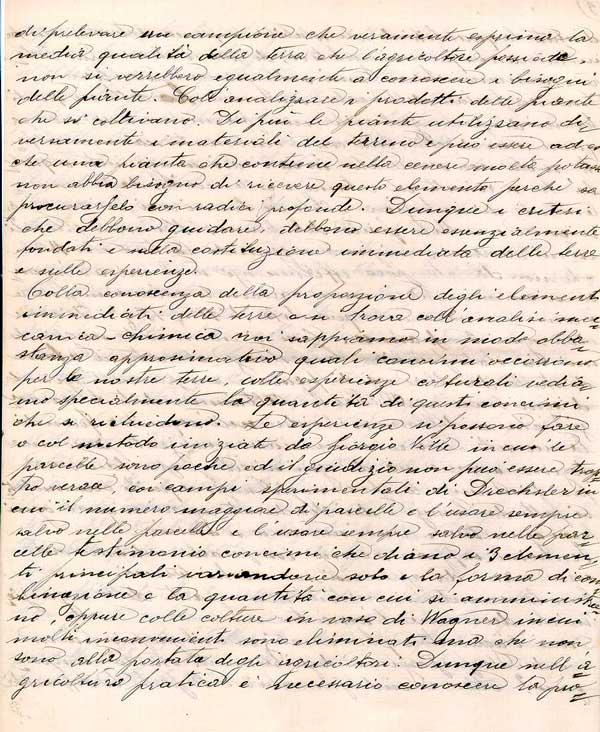 di prelevare un campione che veramente esprima la
media qualità della terra che l'agricoltore possiede,
non si verrebbero egualmente a conoscere i bisogni
delle piante. Coll'analizzare i prodotti delle piante
che si coltivano. Di più le piante utilizzano di-
versamente i materiali del terreno e può essere ad es.
che una pianta che contiene nella cenere molta potassa
non abbia bisogno di ricevere questo elemento perchè sa
procurarselo con radici profonde. Dunque i criteri
che debbono guidare, debbono essere essenzialmente
fondati e nella costituzione immediata delle terre
e sulle esperienze
Colla conoscenza della proporzione degli elementi
immediati delle terre e si trova coll'analisi mec-
canica-chimica noi sappiamo in modo abba-
stanza approssimativo quali concimi occorrono
per le nostre terre, colle esperienze colturali vedia-
mo specialmente la quantità di questi concimi
che si richiedono. Le esperienze si possono fare
o col metodo iniziato da Giorgio Ville in cui le
parcelle sono poche ed il giudizio non può essere trop-
po verace, coi campi sperimentali di Drechsler in
cui il numero maggiore di parcelle e l'usare sempre
salvo nelle parcelle e l'usare sempre salvo nelle par-
celle testimonio concimi che diano i 3 elemen-
ti principali variandone solo la forma di com-
binazione e la quantità con cui si amministra-
no, oppure colle colture in vaso di Wagner in cui
molti inconvenienti sono eliminati ma che non
sono alla portata degli agricoltori. Dunque nell'a-
gricoltura pratica è necessario conoscere la pro-